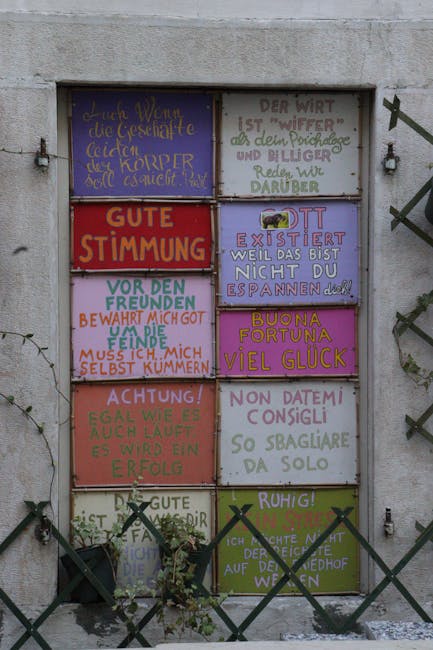 Auch Wenn
die Geschäfte
leiden
der KÖRPER
soll es nicht.
DER WIRT
IST "WIFFER"
als dein Psychologe
UND BILLIGER
Reden Wir
DARÜBER
GUTE
STIMMUNG
GOTT
EXISTIERT
WEIL DAS BIST
NICHT DU
ESPANNEN dich!
VOR DEN
FREUNDEN
BEWAHRT MICH GOT
UM DIE
FEINDE
MUSS ICH MICH
SELBST KÜMMERN
BUONA
FORTUNA
VIEL GLÜCK
ACHTUNG!
EGAL WIE ES
AUCH LÄUFT
ES WIRD EIN
ERFOLG
NON DATEMI
CONSIGLI
SO SBAGLIARE
DA SOLO
DAS GUTE
IST
DIR
NICHT
RUHIG!
ICH MÖCHTE NICHT
DER REICHSTE
AUF DEM FRIEDHOF
WERDEN